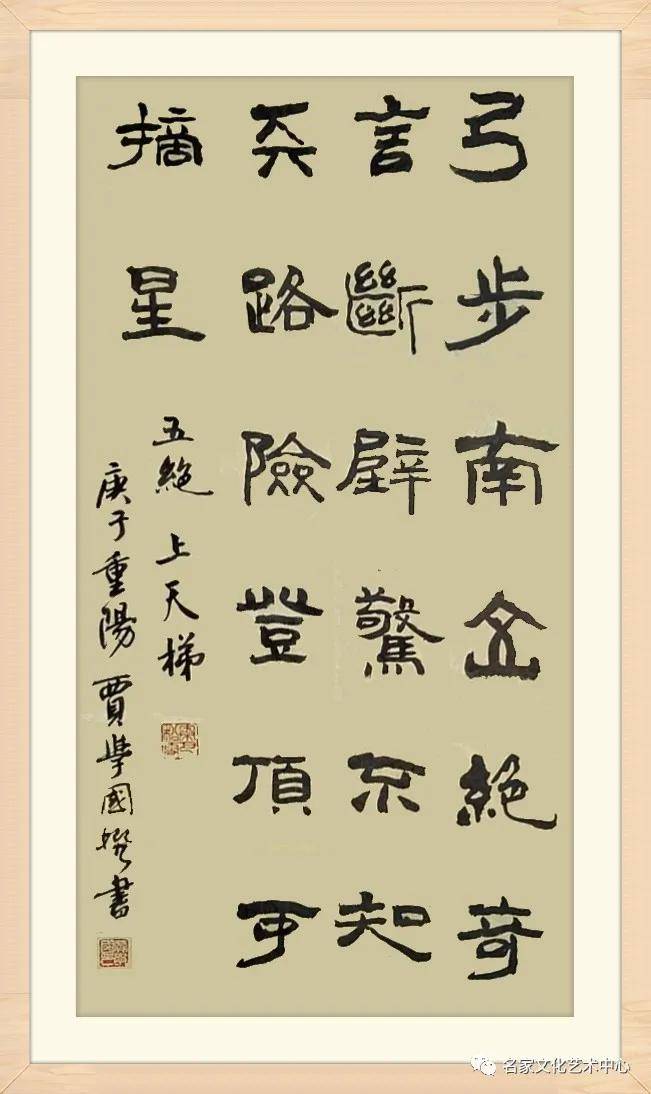 弓步南絕奇
言斷壁驚不知
天路險登頂可
摘星
五絕 上天梯
庚子重陽 賈學國撰書
名家文化艺术中心